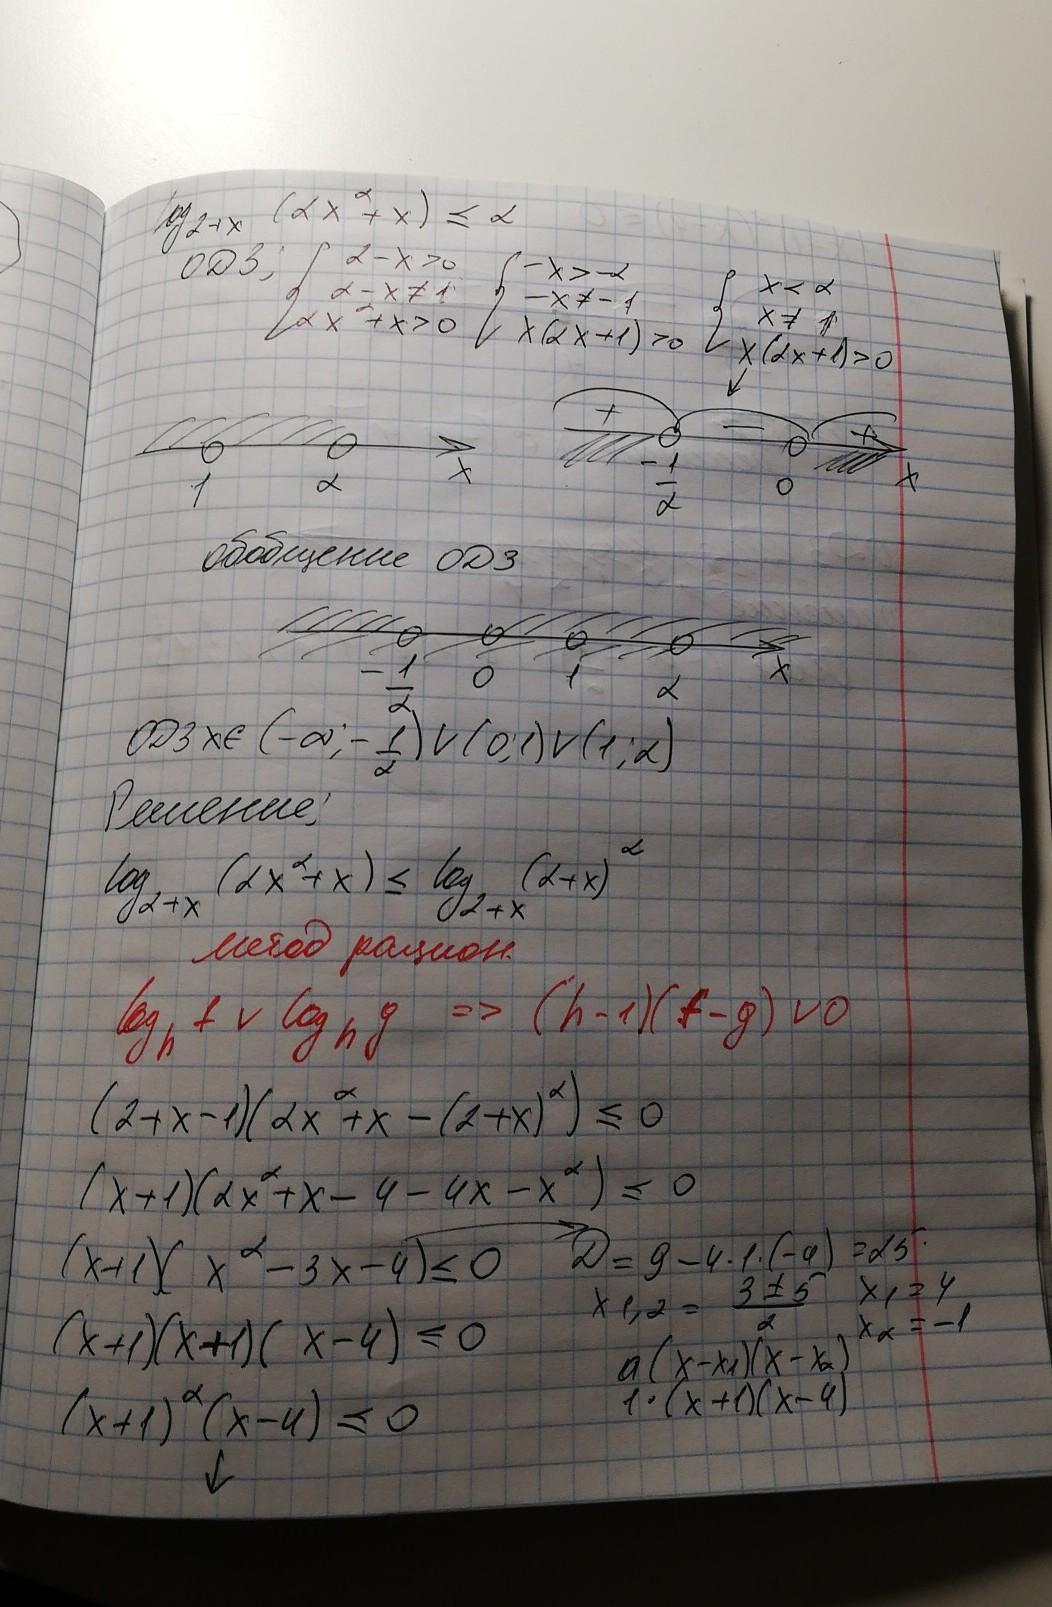 log₂₊ₓ (2x²+x) ≤ 2
ОДЗ: { 2-x>0 { -x>-2 { x<2
2-x≠1 -x≠-1 x≠1
2x²+x>0 x(2x+1)>0 x(2x+1)>0
+ − +
1 2 x -1/2 0 x
обобщение ОДЗ
-1/2 0 1 2 x
ОДЗ x∈ (-∞;-1/2)∨(0;1)∨(1;2)
Решение:
log₂₊ₓ (2x²+x) ≤ log₂₊ₓ (2+x)²
метод рацион.
logₕ f ∨ logₕ g => (h-1)(f-g) ∨ 0
(2+x-1)(2x²+x-(2+x)²) ≤ 0
(x+1)(2x²+x-4-4x-x²) ≤ 0
(x+1)(x²-3x-4) ≤ 0 D=9-4·1·(-4)=25
x1,2 = (3±5)/2 x₁=4
x₂=-1
(x+1)(x+1)(x-4) ≤ 0
a(x-x₁)(x-x₂)
1·(x+1)(x-4)
(x+1)²(x-4) ≤ 0